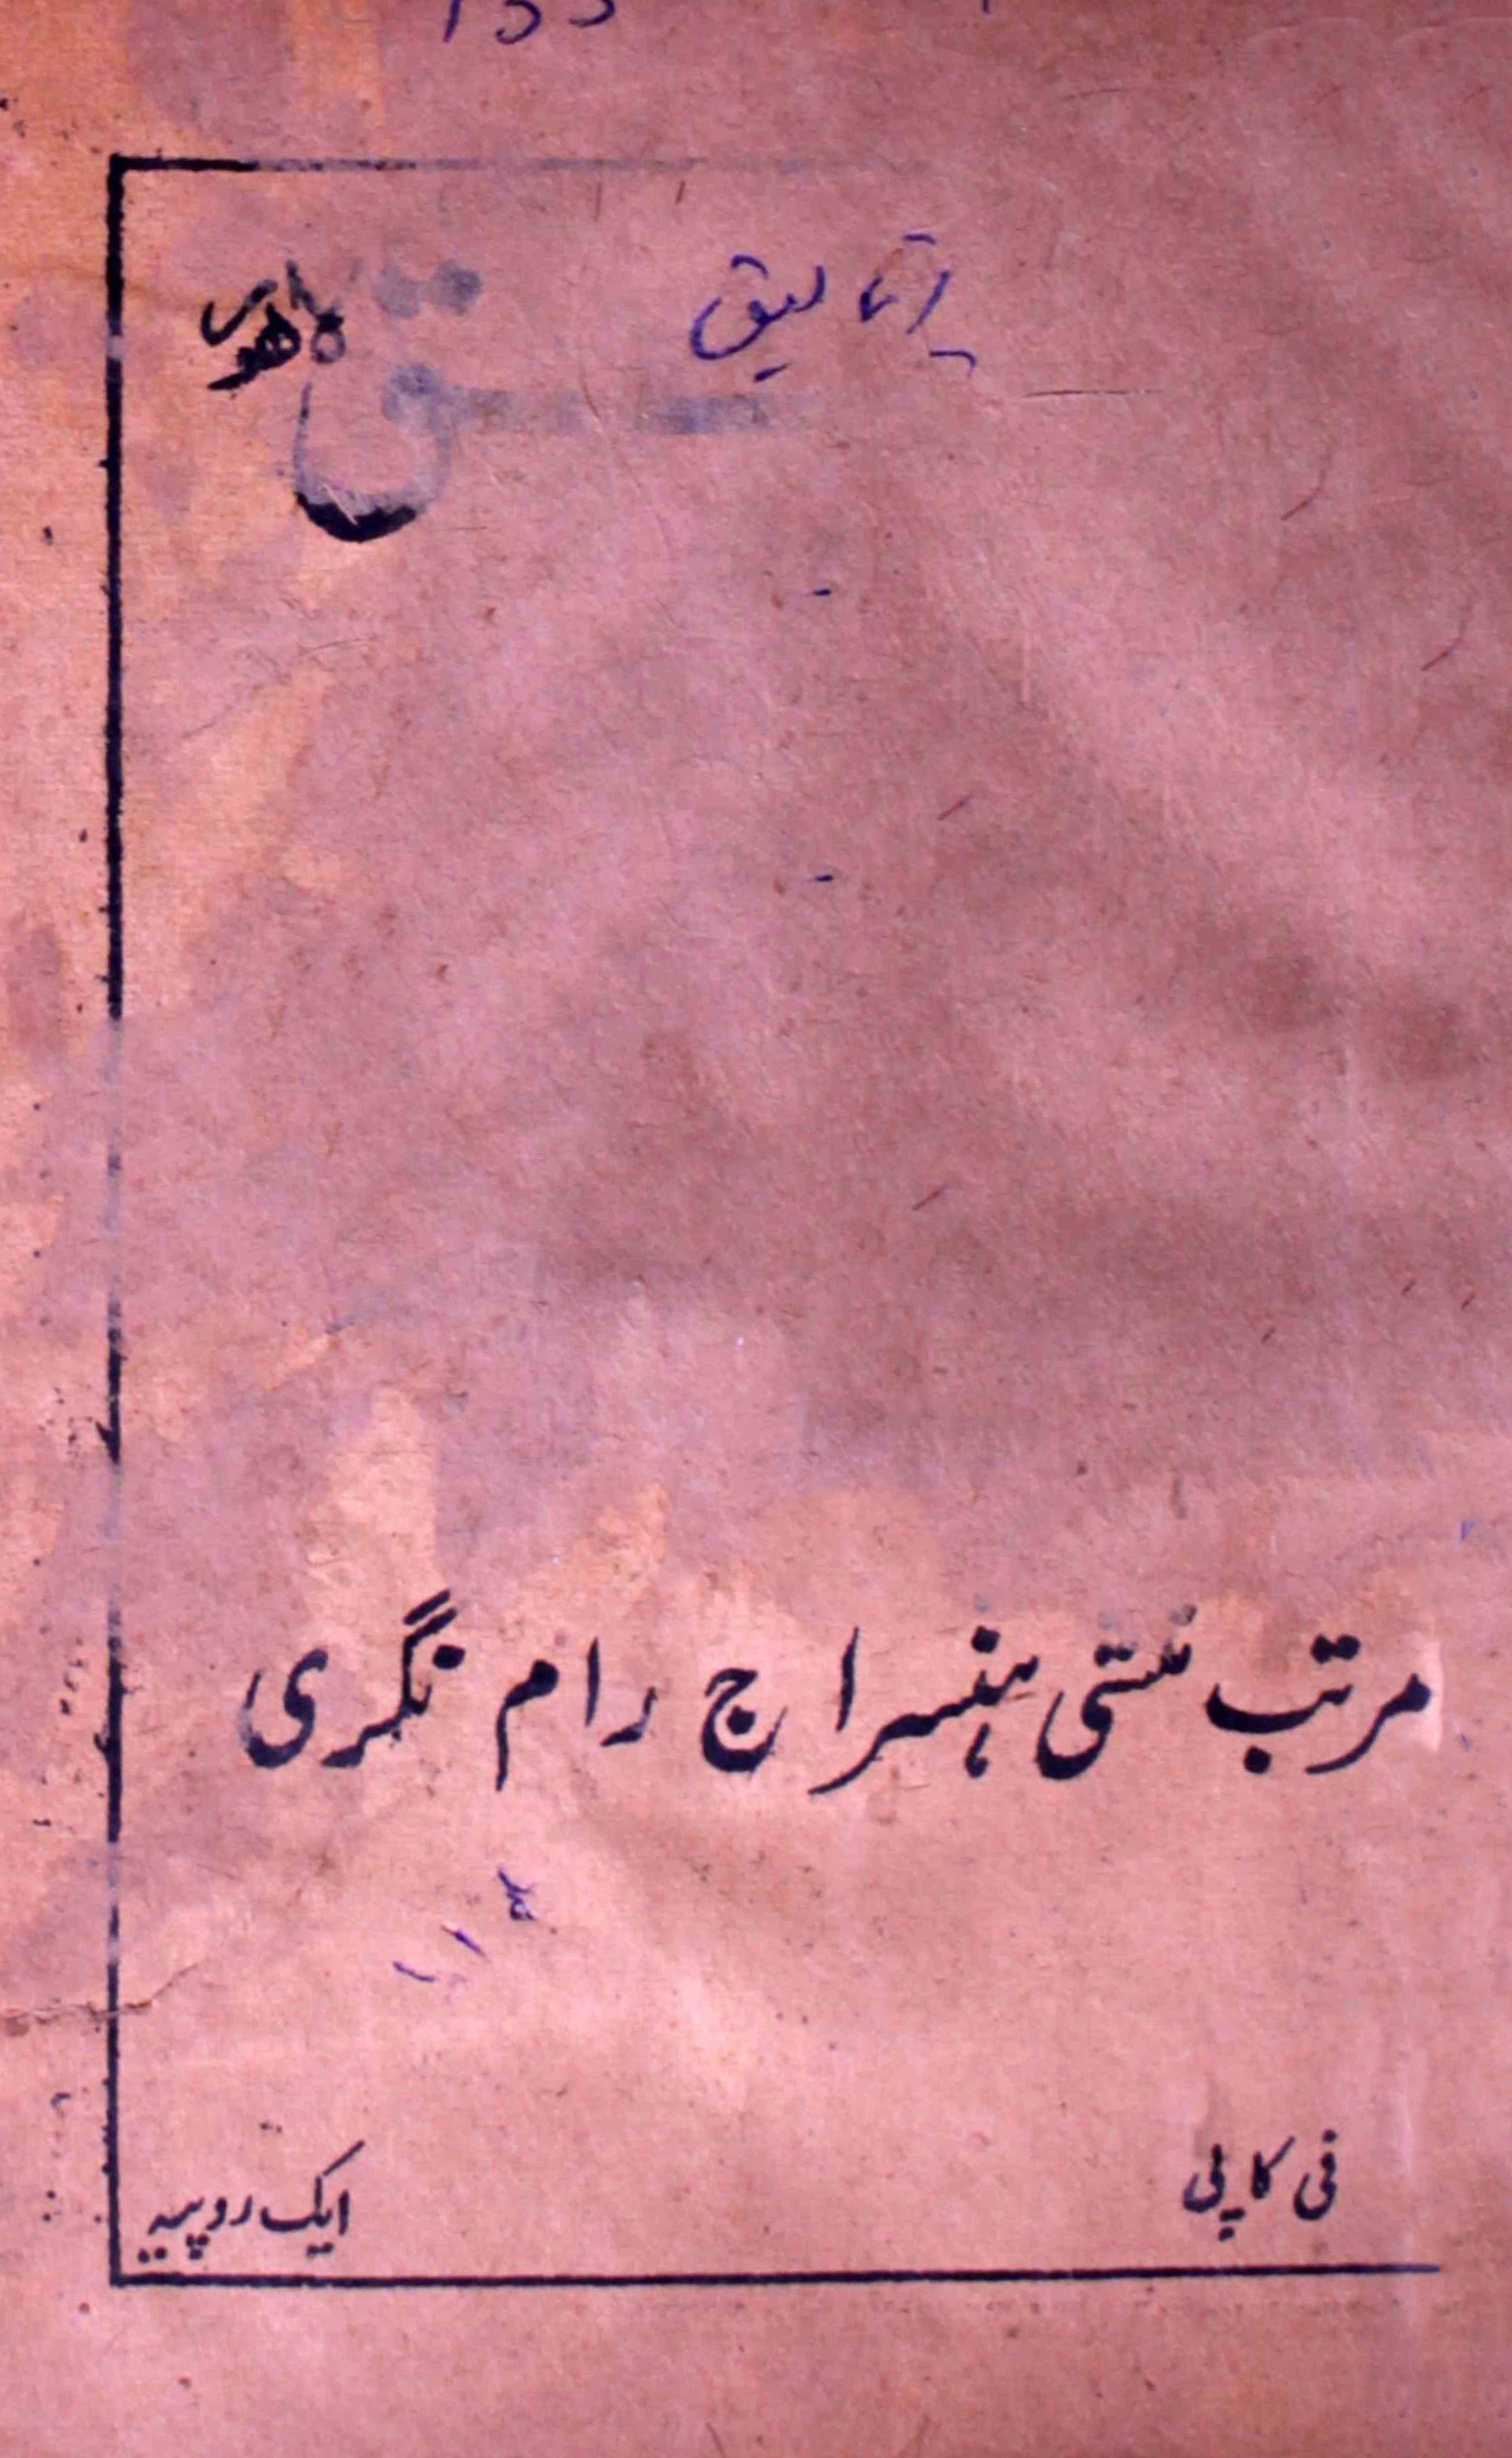 اتالیق
ماهوار
مرتب منشی ہنسراج رام نگری
فی کاپی
ایک روپیہ